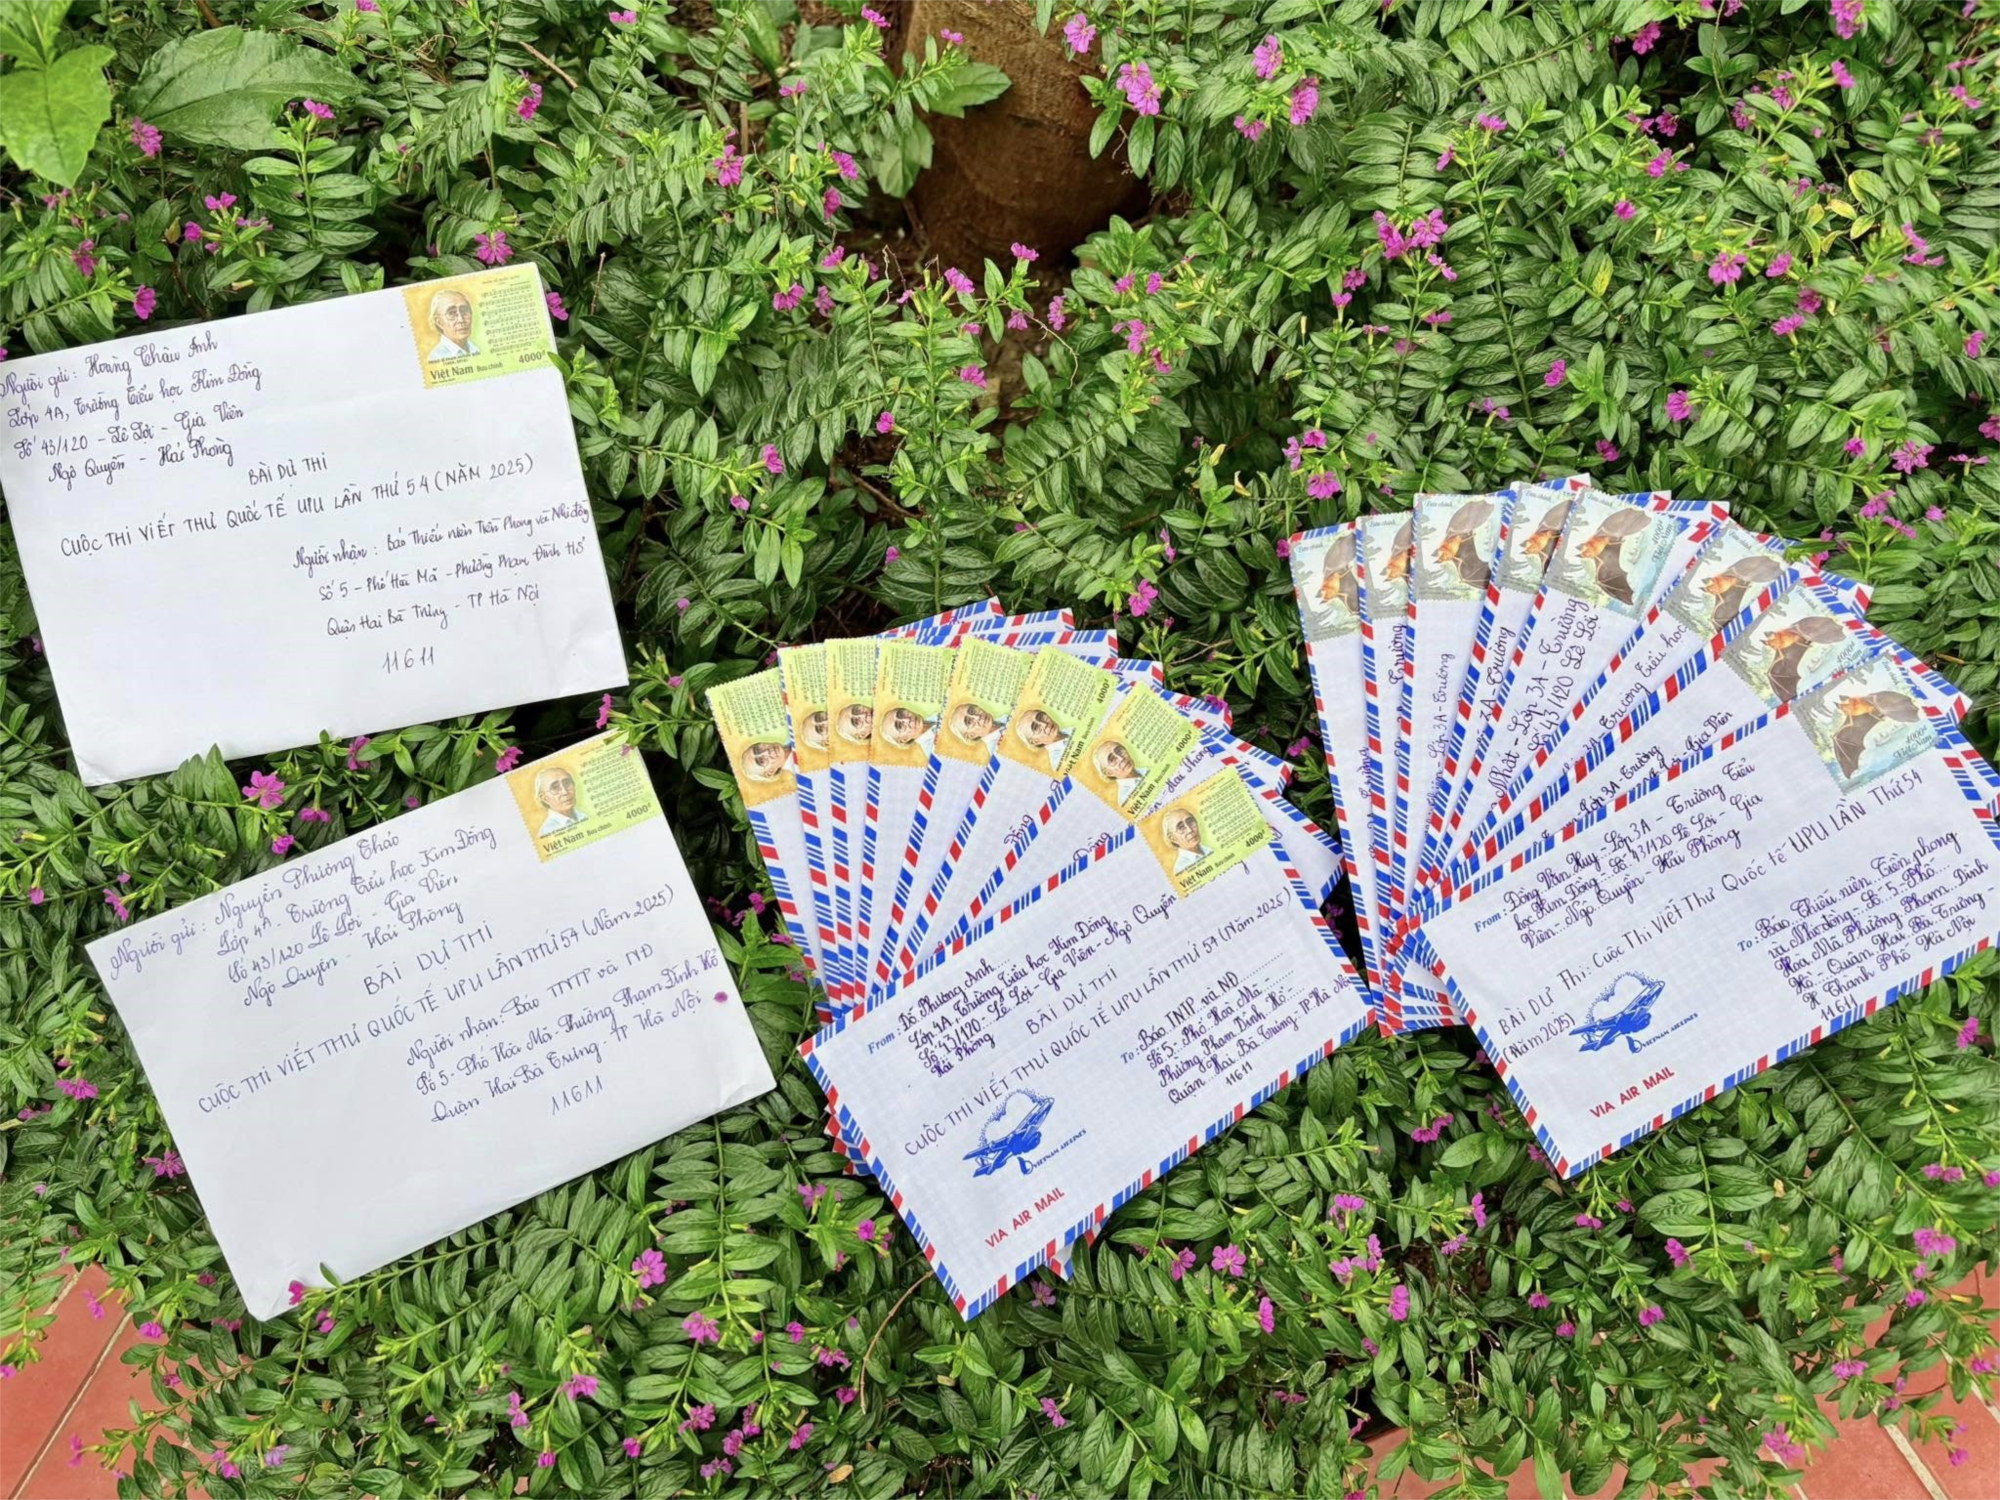 Người gửi: Hoàng Châu Anh
Lớp 4A, Trường Tiểu học Kim Đồng
Số 43/120 - Lê Lợi - Gia Viên
Ngô Quyền - Hải Phòng
BÀI DỰ THI
CUỘC THI VIẾT THƯ QUỐC TẾ UPU LẦN THỨ 54 (NĂM 2025)
Người nhận: Báo Thiếu niên Tiền Phong và Nhi đồng
Số 5 - Phố Hòa Mã - Phường Phạm Đình Hổ
Quận Hai Bà Trưng - TP Hà Nội
11611
4000đ
Việt Nam Bưu chính
Người gửi: Nguyễn Phương Thảo
Lớp 4A, Trường Tiểu học Kim Đồng
Số 43/120 Lê Lợi - Gia Viên,
Ngô Quyền - Hải Phòng
BÀI DỰ THI
CUỘC THI VIẾT THƯ QUỐC TẾ UPU LẦN THỨ 54 (Năm 2025)
Người nhận: Báo TNTP và NĐ
Số 5 - Phố Hòa Mã - Phường Phạm Đình Hổ
Quận Hai Bà Trưng - TP Hà Nội
11611
4000đ
Việt Nam Bưu chính
From: Đỗ Phương Anh
Lớp 4A, Trường Tiểu học Kim Đồng
Số 43/120 - Lê Lợi - Gia Viên - Ngô Quyền
Hải Phòng
BÀI DỰ THI
CUỘC THI VIẾT THƯ QUỐC TẾ UPU LẦN THỨ 54 (Năm 2025)
To: Báo TNTP và NĐ
Số 5 - Phố Hòa Mã -
Phường Phạm Đình Hổ -
Quận Hai Bà Trưng - TP Hà Nội
11611
VIETNAM AIRLINES
VIA AIR MAIL
4000đ
Việt Nam Bưu chính
From: Đồng Văn Huy - Lớp 3A - Trường Tiểu
học Kim Đồng - Số 43/120 Lê Lợi - Gia
Viên - Ngô Quyền - Hải Phòng
BÀI DỰ Thi: Cuộc Thi Viết Thư Quốc tế UPU LẦN Thứ 54
(Năm 2025)
To: Báo Thiếu niên Tiền phong
và Nhi đồng - Số 5 - Phố
Hoà Mã Phường Phạm Đình
Hổ - Quận Hai Bà Trưng -
TP Thành Phố Hà Nội
11611
VIETNAM AIRLINES
VIA AIR MAIL
4000đ
Việt Nam